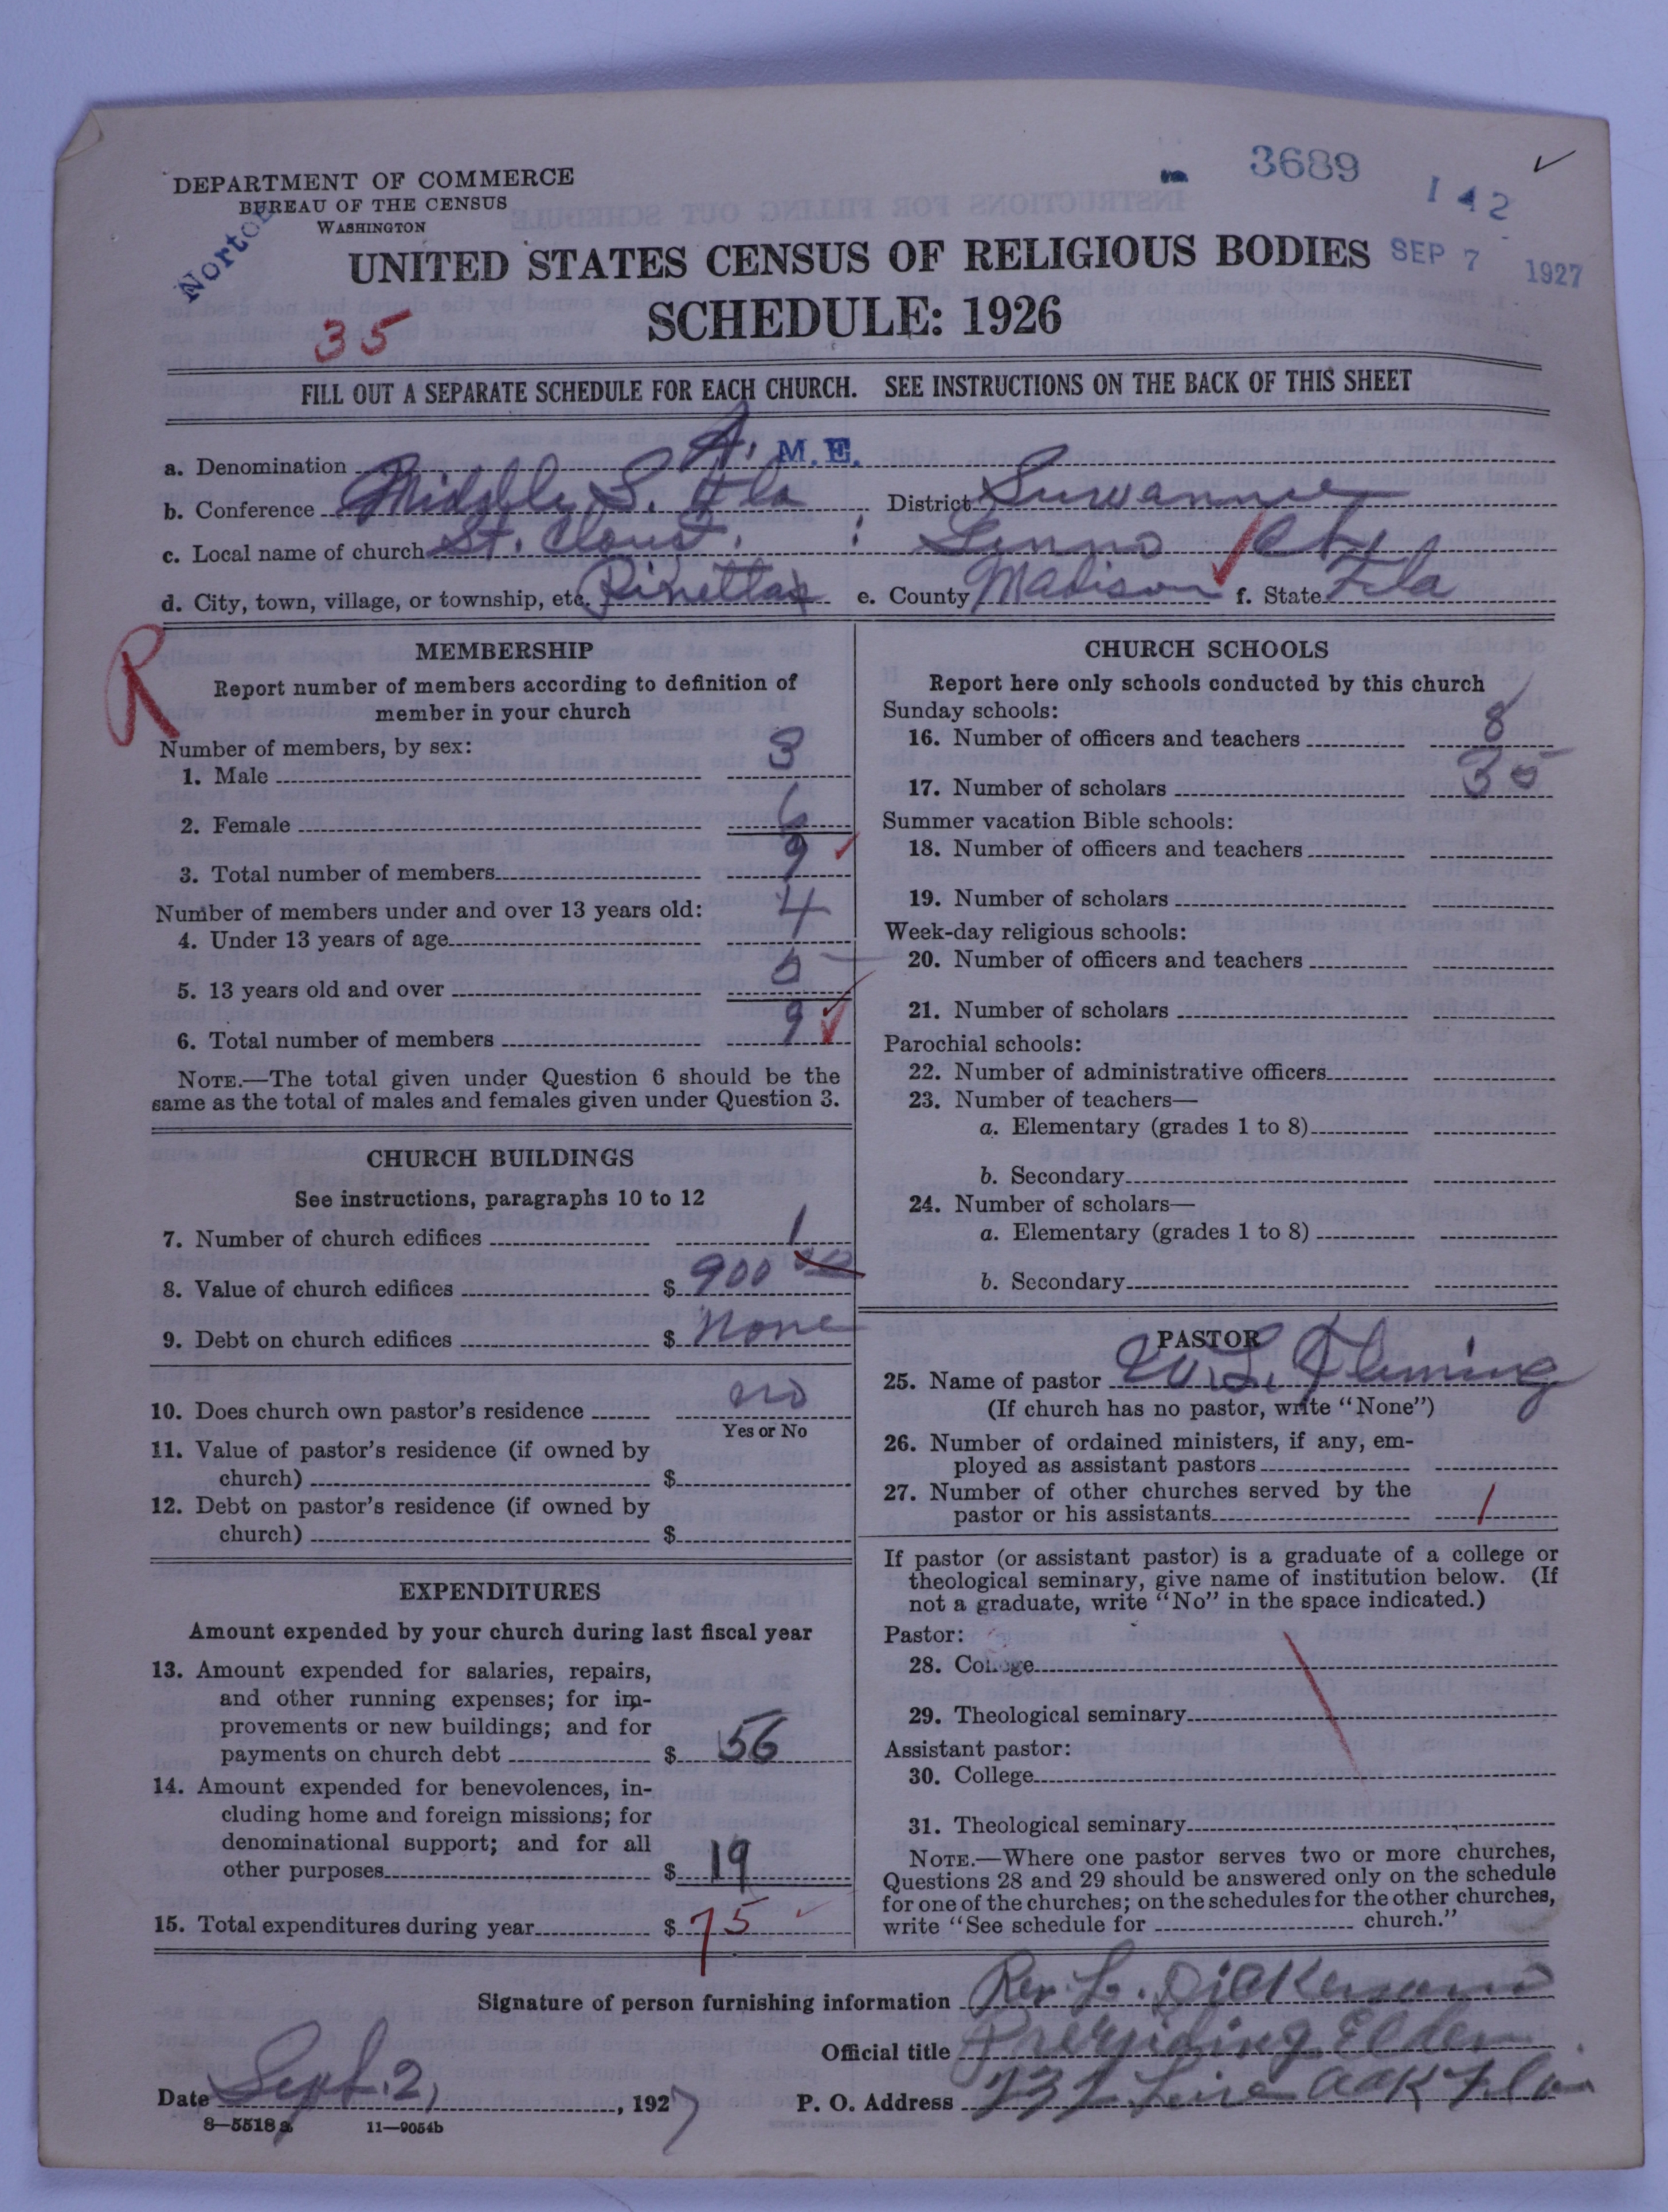 3689
142
DEPARTMENT OF COMMERCE
BUREAU OF THE CENSUS
WASHINGTON
Norton
UNITED STATES CENSUS OF RELIGIOUS BODIES
SEP 7 1927
SCHEDULE: 1926
35
FILL OUT A SEPARATE SCHEDULE FOR EACH CHURCH. SEE INSTRUCTIONS ON THE BACK OF THIS SHEET
a. Denomination A. M. E.
b. Conference Middle S. Fla District Suwannee
c. Local name of church St.
d. City, town, village, or township, etc. e. County Madison f. State Fla
R
MEMBERSHIP
Report number of members according to definition of
member in your church
Number of members, by sex:
1. Male 3
2. Female 6
3. Total number of members 9
Number of members under and over 13 years old:
4. Under 13 years of age 4
5. 13 years old and over 5
6. Total number of members 9
NOTE.—The total given under Question 6 should be the
same as the total of males and females given under Question 3.
CHURCH BUILDINGS
See instructions, paragraphs 10 to 12
7. Number of church edifices 1
8. Value of church edifices $ 900 00
9. Debt on church edifices $ None
10. Does church own pastor's residence no
Yes or No
11. Value of pastor's residence (if owned by
church) $
12. Debt on pastor's residence (if owned by
church) $
EXPENDITURES
Amount expended by your church during last fiscal year
13. Amount expended for salaries, repairs,
and other running expenses; for im-
provements or new buildings; and for
payments on church debt $ 56
14. Amount expended for benevolences, in-
cluding home and foreign missions; for
denominational support; and for all
other purposes $ 19
15. Total expenditures during year $ 75
CHURCH SCHOOLS
Report here only schools conducted by this church
Sunday schools:
16. Number of officers and teachers 8
17. Number of scholars 35
Summer vacation Bible schools:
18. Number of officers and teachers
19. Number of scholars
Week-day religious schools:
20. Number of officers and teachers
21. Number of scholars
Parochial schools:
22. Number of administrative officers
23. Number of teachers—
a. Elementary (grades 1 to 8)
b. Secondary
24. Number of scholars—
a. Elementary (grades 1 to 8)
b. Secondary
PASTOR
25. Name of pastor W. L. Fleming
(If church has no pastor, write "None")
26. Number of ordained ministers, if any, em-
ployed as assistant pastors
27. Number of other churches served by the
pastor or his assistants 1
If pastor (or assistant pastor) is a graduate of a college or
theological seminary, give name of institution below. (If
not a graduate, write "No" in the space indicated.)
Pastor:
28. College
29. Theological seminary
Assistant pastor:
30. College
31. Theological seminary
NOTE.—Where one pastor serves two or more churches,
Questions 28 and 29 should be answered only on the schedule
for one of the churches; on the schedules for the other churches,
write "See schedule for church."
Signature of person furnishing information Rev. L. Dickerson
Official title Presiding Elder
Date Sept. 2, 1927 P. O. Address Live Oak Fla
8—5518a 11—9054b